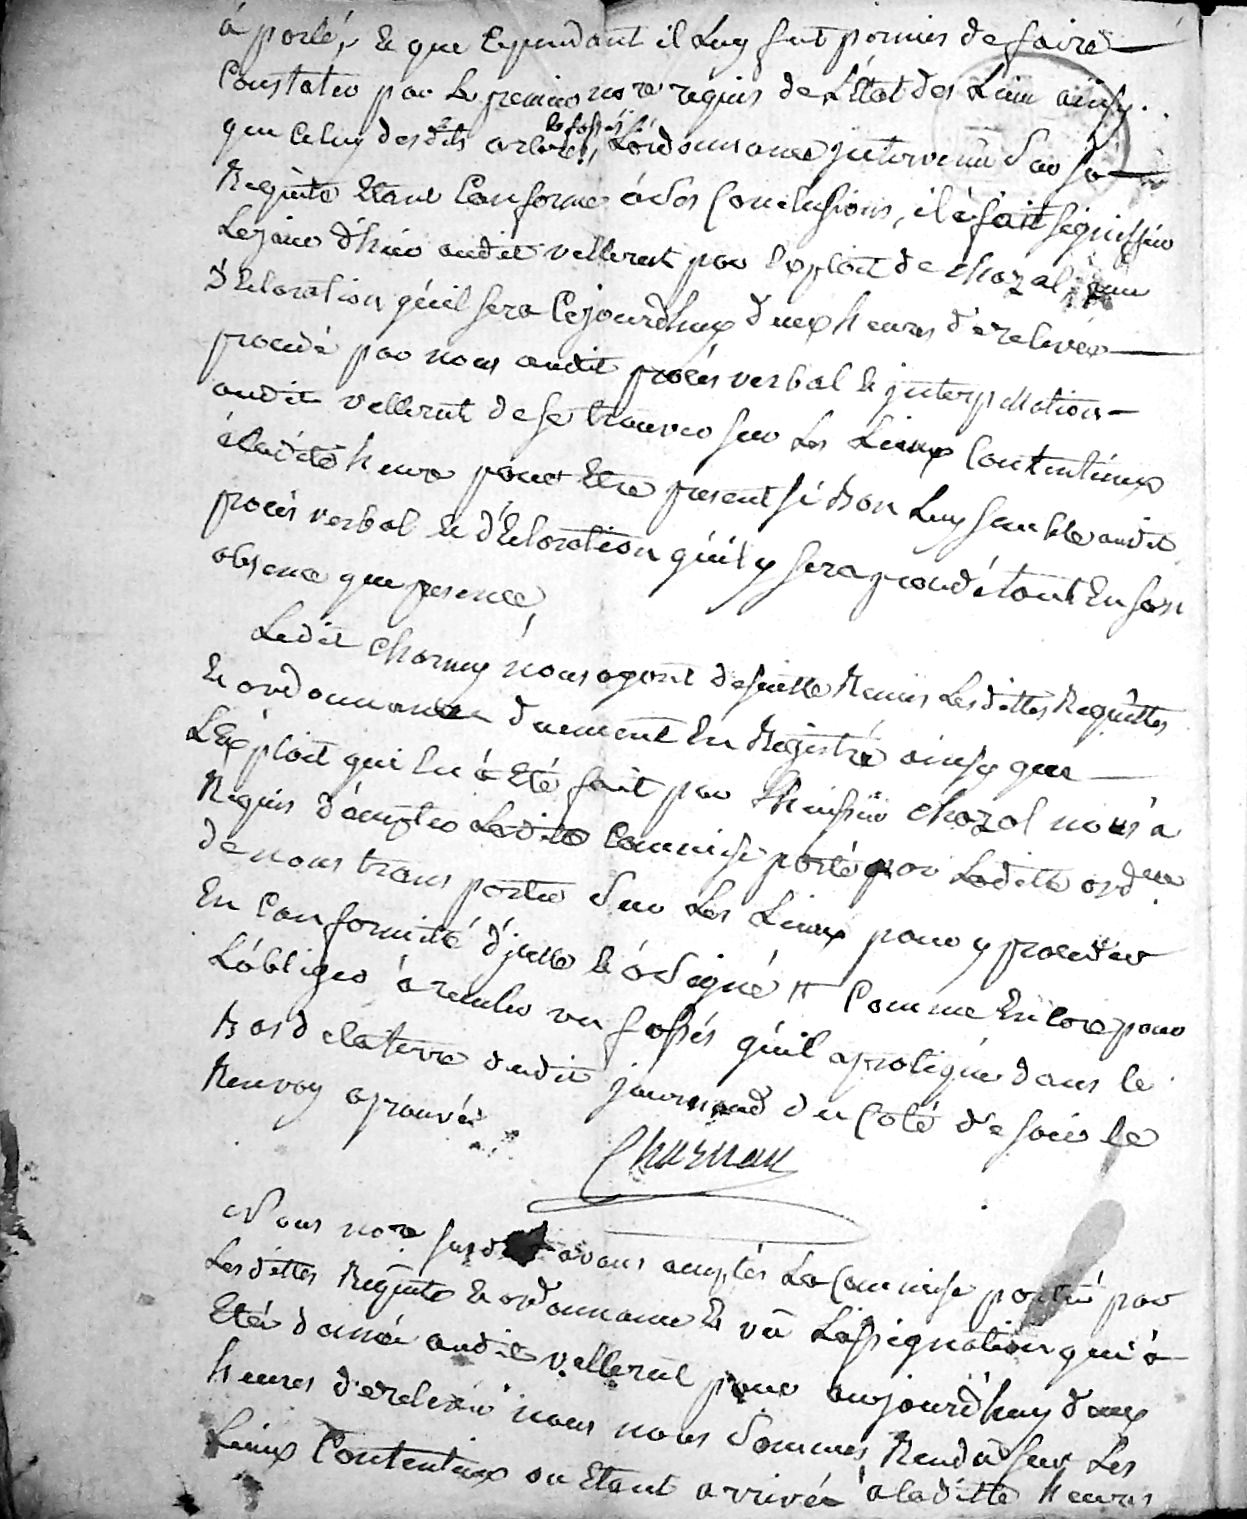 á porté, & que Cependant il Luy fut permis de faire
Constater par Le premier no.re réquis de L'état des Lieux ainsy
que Celuy desdits arbres, & fossés L'ordonnance jntervenüe Sur sa
Requête Etant Conforme á Ses Conclusions, il á fait signiffier
Lejour d'hier audit vellerut par Exploit de Chazal avec
déclaration qu'il sera Cejourdhuy deux heures de relevée
procédé par nous audit procés verbal & jnterpellation
audit vellerut de se trouver sur Les Lieux Contentieux
áladitte heure pour Etre present si Bon Luy semble audit
procés verbal et déclaration qu'il y sera procédé tant En son
absence que presence,
Ledit Charnay nous ayant desuitte Remis Lesdittes Requettes
& ordonnance duement En Registré ainsy que
L'Exploit qui En á Eté fait par Lhuissier Chazal nous á
Requis d'accepter Laditte Commise porté par Laditte ordce
de nous transporter Sur Les Lieux pour y procéder
En Conformité d'jcelle & á Signé # Comme Encore pour
L'obliger á combler un fossés qu'il á pratiqué dans le
Bord delaterre dudit journaud du Coté de soir le
Renvoy aprouvée
Charnay
Nous no.re susdit avons acceptés La Commise portée par
Lesdittes Requête & ordonnance & vû L'assignation qui á
Eté donnée audit vellerut pour aujourd'huy deux
heures de relevée nous nous Sommes Rendu sur Les
Lieux Contentieux ou Etant arrivée á laditte heures